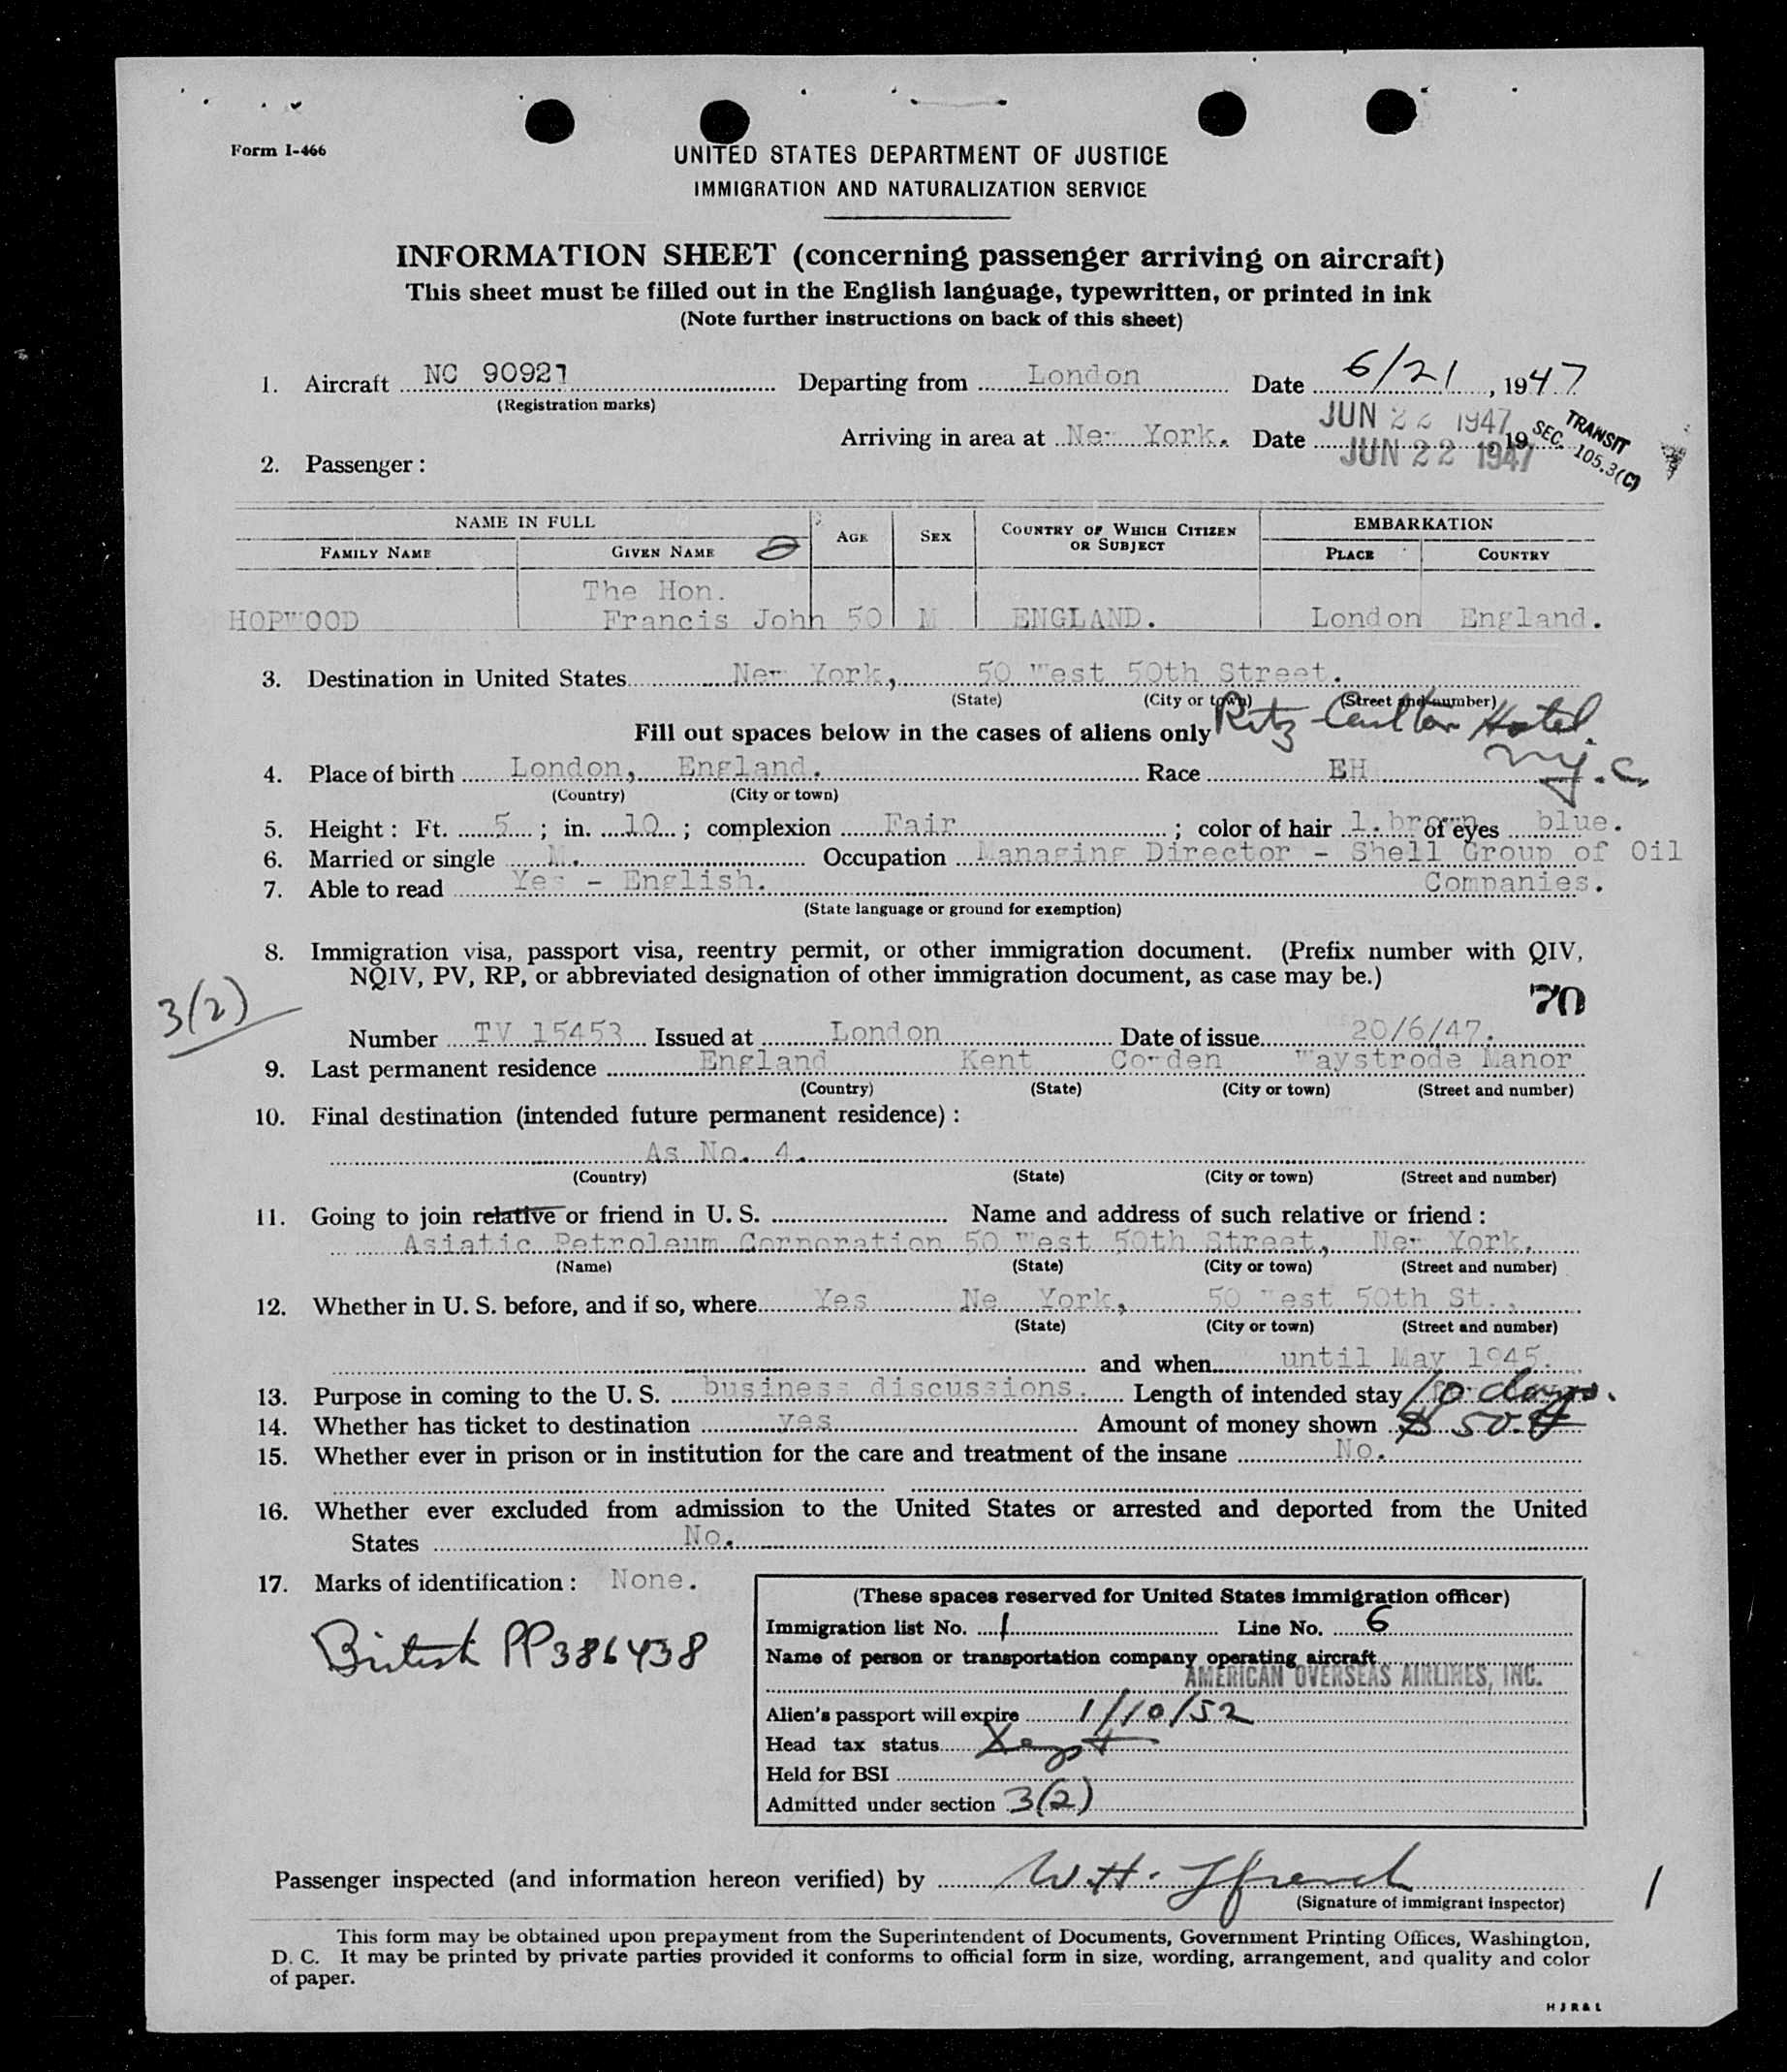 Form I-466
UNITED STATES DEPARTMENT OF JUSTICE
IMMIGRATION AND NATURALIZATION SERVICE
INFORMATION SHEET (concerning passenger arriving on aircraft)
This sheet must be filled out in the English language, typewritten, or printed in ink
(Note further instructions on back of this sheet)
1. Aircraft NC 90921 Departing from London Date 6/21, 1947
(Registration marks)
JUN 22 1947 TRANSIT
Arriving in area at New York. Date JUN 22 1947 19 SEC. 105.3(C)
2. Passenger:
NAME IN FULL AGE SEX COUNTRY OF WHICH CITIZEN OR SUBJECT EMBARKATION
FAMILY NAME GIVEN NAME PLACE COUNTRY
The Hon.
HOPWOOD Francis John 50 M ENGLAND. London England.
3. Destination in United States New York, 50 West 50th Street.
(State) (City or town) (Street and number)
Ritz Carlton Hotel.
Fill out spaces below in the cases of aliens only
N.Y.C.
4. Place of birth London, England. Race EH
(Country) (City or town)
5. Height: Ft. 5; in. 10; complexion Fair; color of hair l. brown of eyes blue.
6. Married or single M. Occupation Managing Director - Shell Group of Oil
7. Able to read Yes - English. Companies.
(State language or ground for exemption)
8. Immigration visa, passport visa, reentry permit, or other immigration document. (Prefix number with QIV,
NQIV, PV, RP, or abbreviated designation of other immigration document, as case may be.)
3(2) 70
Number TV 15453 Issued at London Date of issue 20/6/47.
9. Last permanent residence England Kent Cowden Waystrode Manor
(Country) (State) (City or town) (Street and number)
10. Final destination (intended future permanent residence):
As No. 4.
(Country) (State) (City or town) (Street and number)
11. Going to join relative or friend in U. S. Name and address of such relative or friend:
Asiatic Petroleum Corporation 50 West 50th Street, New York.
(Name) (State) (City or town) (Street and number)
12. Whether in U. S. before, and if so, where Yes New York, 50 West 50th St.,
(State) (City or town) (Street and number)
and when until May 1945.
13. Purpose in coming to the U. S. business discussions. Length of intended stay 10 days.
14. Whether has ticket to destination yes Amount of money shown $ 50.
15. Whether ever in prison or in institution for the care and treatment of the insane No.
16. Whether ever excluded from admission to the United States or arrested and deported from the United
States No.
17. Marks of identification: None.
British PP 386438
(These spaces reserved for United States immigration officer)
Immigration list No. 1 Line No. 6
Name of person or transportation company operating aircraft
AMERICAN OVERSEAS AIRLINES, INC.
Alien's passport will expire 1/10/52
Head tax status Xempt
Held for BSI
Admitted under section 3(2)
Passenger inspected (and information hereon verified) by W.H. Ffrench 1
(Signature of immigrant inspector)
This form may be obtained upon prepayment from the Superintendent of Documents, Government Printing Offices, Washington,
D. C. It may be printed by private parties provided it conforms to official form in size, wording, arrangement, and quality and color
of paper.
HJR&L